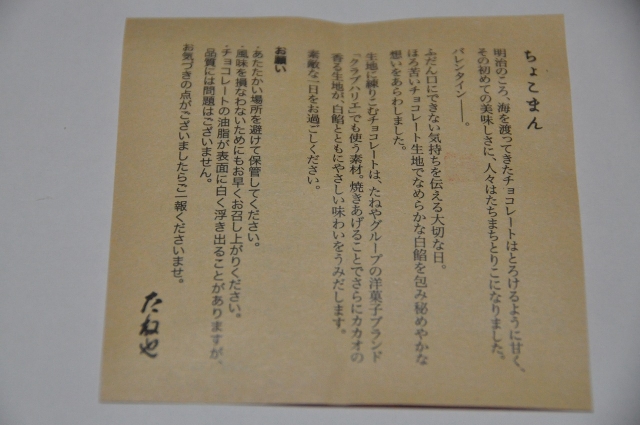 ちょこまん
明治のころ、海を渡ってきたチョコレートはとろけるように甘く、
その初めての美味しさに、人々はたちまちとりこになりました。
バレンタイン――。
ふだん口にできない気持ちを伝える大切な日。
ほろ苦いチョコレート生地でなめらかな白餡を包み秘めやかな
想いをあらわしました。
生地に練りこむチョコレートは、たねやグループの洋菓子ブランド
「クラブハリエ」でも使う素材。焼きあげることでさらにカカオの
香る生地が、白餡とともにやさしい味わいをうみだします。
素敵な一日をお過ごしください。
お願い
・あたたかい場所を避けて保管してください。
・風味を損なわないためにもお早くお召し上がりください。
・チョコレートの油脂が表面に白く浮き出ることがありますが、
品質には問題はございません。
お気づきの点がございましたらご一報くださいませ。
たねや